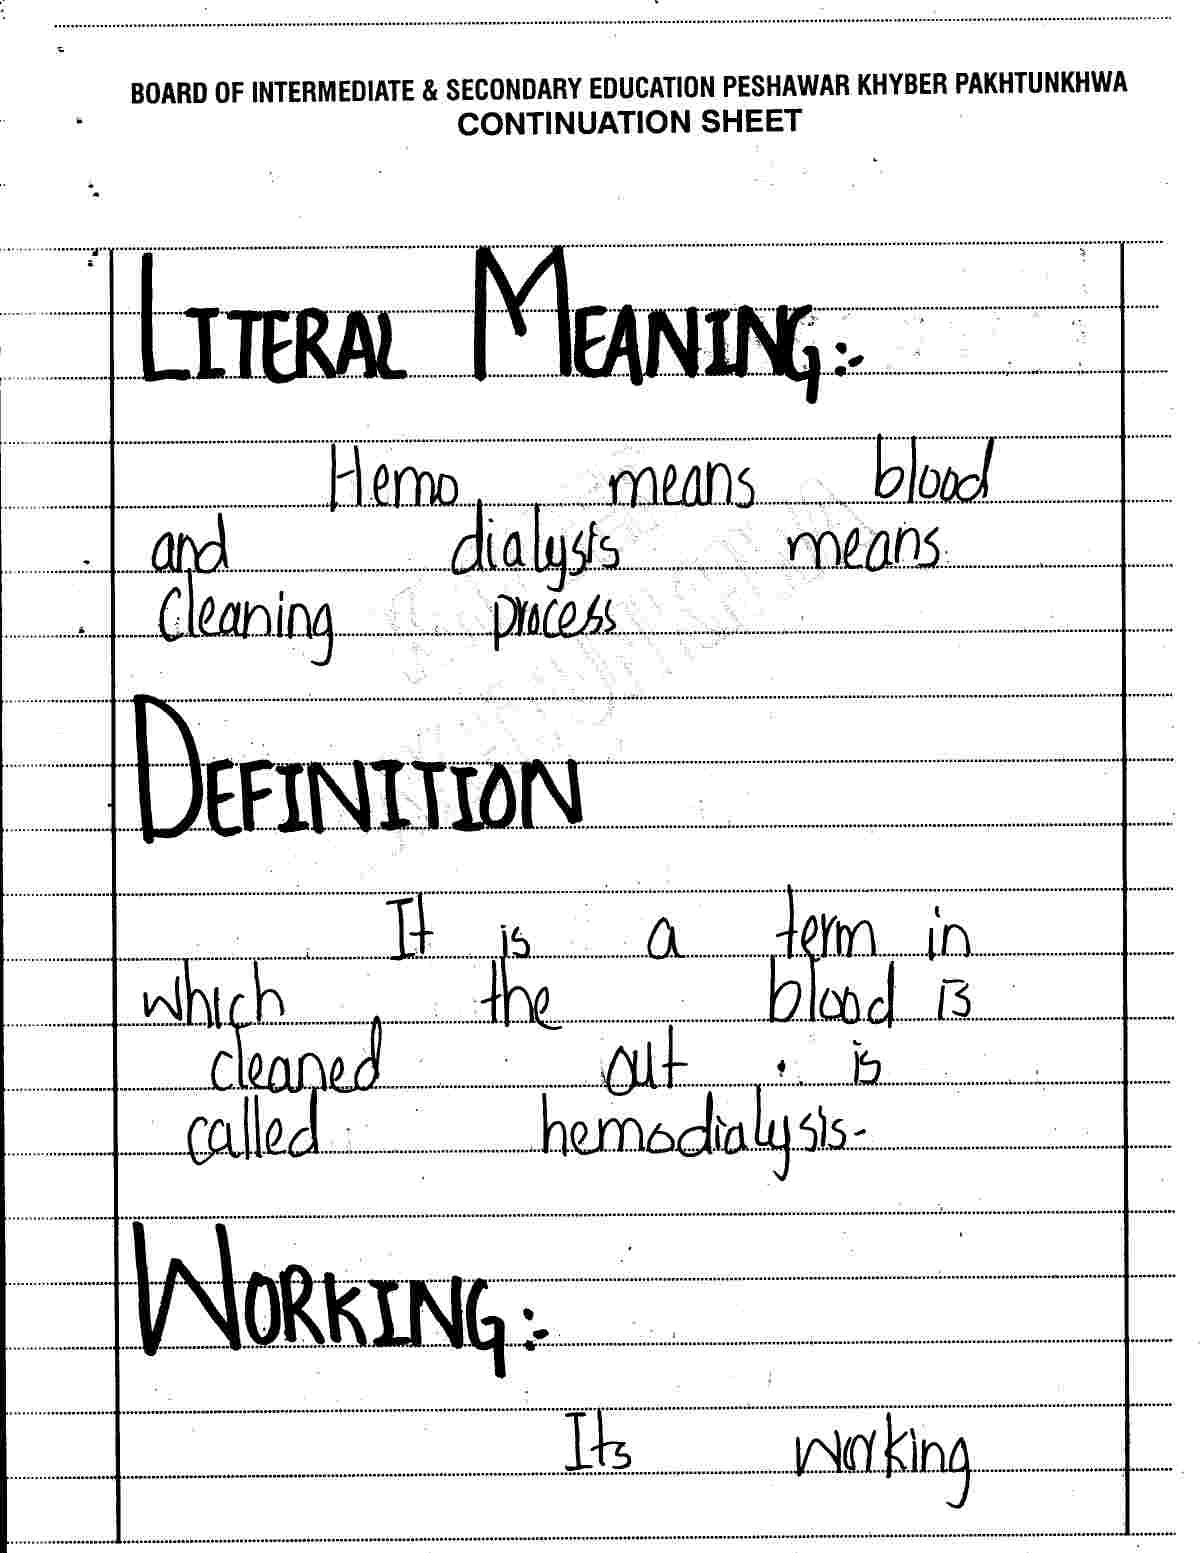 BOARD OF INTERMEDIATE & SECONDARY EDUCATION PESHAWAR KHYBER PAKHTUNKHWA
CONTINUATION SHEET
LITERAL MEANING:-
Hemo means blood
and dialysis means
cleaning process
DEFINITION
It is a term in
which the blood is
cleaned out . is
called hemodialysis-
WORKING:-
Its working